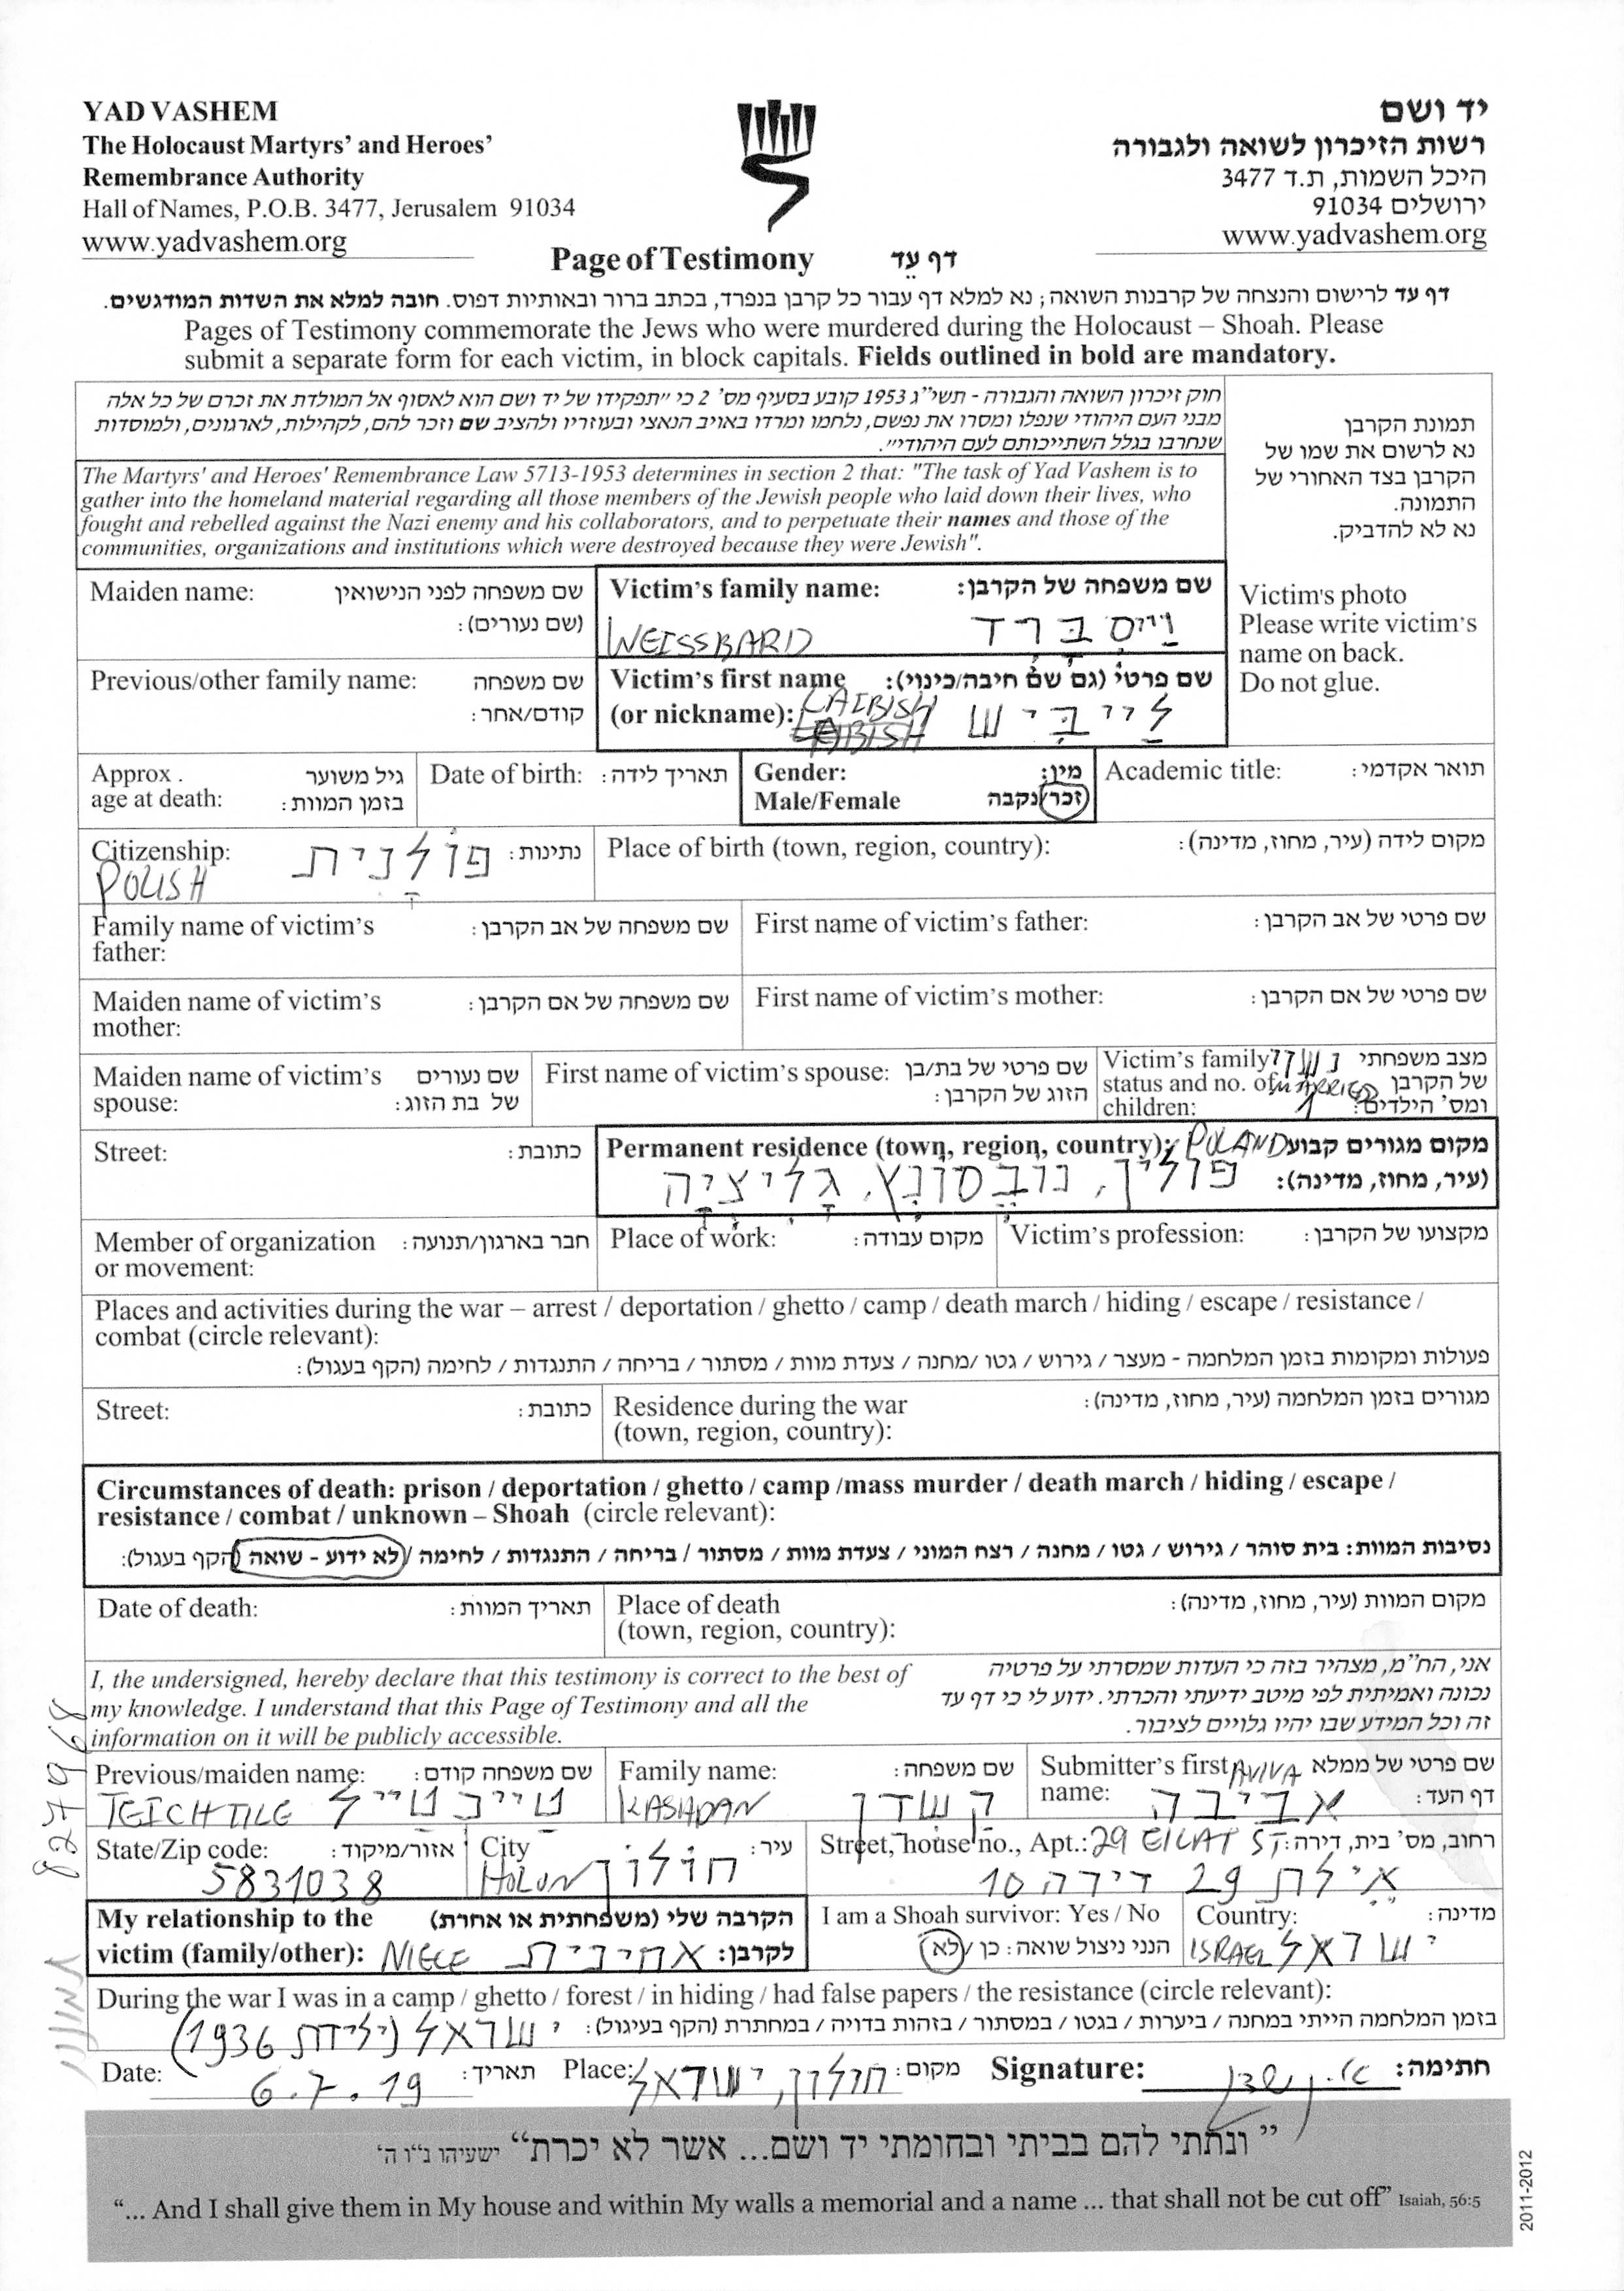 YAD VASHEM
The Holocaust Martyrs' and Heroes'
Remembrance Authority
Hall of Names, P.O.B. 3477, Jerusalem 91034
www.yadvashem.org
יד ושם
רשות הזיכרון לשואה ולגבורה
היכל השמות, ת.ד 3477
ירושלים 91034
www.yadvashem.org
Page of Testimony דף עד
דף עד לרישום והנצחה של קרבנות השואה; נא למלא דף עבור כל קרבן בנפרד, בכתב ברור ובאותיות דפוס. חובה למלא את השדות המודגשים.
Pages of Testimony commemorate the Jews who were murdered during the Holocaust – Shoah. Please
submit a separate form for each victim, in block capitals. Fields outlined in bold are mandatory.
חוק זיכרון השואה והגבורה - תשי"ג 1953 קובע בסעיף מס' 2 כי "תפקידו של יד ושם הוא לאסוף אל המולדת את זכרם של כל אלה
מבני העם היהודי שנפלו ומסרו את נפשם, נלחמו ומרדו באויב הנאצי ובעוזריו ולהציב שם וזכר להם, לקהילות, לארגונים, ולמוסדות
שנחרבו בגלל השתייכותם לעם היהודי".
The Martyrs' and Heroes' Remembrance Law 5713-1953 determines in section 2 that: "The task of Yad Vashem is to
gather into the homeland material regarding all those members of the Jewish people who laid down their lives, who
fought and rebelled against the Nazi enemy and his collaborators, and to perpetuate their names and those of the
communities, organizations and institutions which were destroyed because they were Jewish".
תמונת הקרבן
נא לרשום את שמו של
הקרבן בצד האחורי של
התמונה.
נא לא להדביק.
Victim's photo
Please write victim's
name on back.
Do not glue.
Maiden name: שם משפחה לפני הנישואין
(שם נעורים):
Victim's family name: שם משפחה של הקרבן:
WEISSBARD וַיְיסְבַּרְד
Previous/other family name: שם משפחה
קודם/אחר:
Victim's first name שם פרטי (גם שם חיבה/כינוי):
(or nickname): LAIBISH לַייבִּיש
Approx. גיל משוער
age at death: בזמן המוות:
Date of birth: תאריך לידה:
Gender: מין:
Male/Female זכר/נקבה
Academic title: תואר אקדמי:
Citizenship: נתינות: פולנית
POLISH
Place of birth (town, region, country): מקום לידה (עיר, מחוז, מדינה):
Family name of victim's שם משפחה של אב הקרבן:
father:
First name of victim's father: שם פרטי של אב הקרבן:
Maiden name of victim's שם משפחה של אם הקרבן:
mother:
First name of victim's mother: שם פרטי של אם הקרבן:
Maiden name of victim's שם נעורים
spouse: של בת הזוג:
First name of victim's spouse: שם פרטי של בת/בן
הזוג של הקרבן:
Victim's family נשוי מצב משפחתי
status and no. of MARRIED של הקרבן
children: 1 ומס' הילדים:
Street: כתובת:
Permanent residence (town, region, country): POLAND מקום מגורים קבוע
(עיר, מחוז, מדינה): פולין, נובסונץ, גליציה
Member of organization חבר בארגון/תנועה:
or movement:
Place of work: מקום עבודה:
Victim's profession: מקצועו של הקרבן:
Places and activities during the war – arrest / deportation / ghetto / camp / death march / hiding / escape / resistance /
combat (circle relevant):
פעולות ומקומות בזמן המלחמה - מעצר / גירוש / גטו /מחנה / צעדת מוות / מסתור / בריחה / התנגדות / לחימה (הקף בעגול):
Street: כתובת:
Residence during the war מגורים בזמן המלחמה (עיר, מחוז, מדינה):
(town, region, country):
Circumstances of death: prison / deportation / ghetto / camp /mass murder / death march / hiding / escape /
resistance / combat / unknown – Shoah (circle relevant):
נסיבות המוות: בית סוהר / גירוש / גטו / מחנה / רצח המוני / צעדת מוות / מסתור / בריחה / התנגדות / לחימה /לא ידוע - שואה (הקף בעגול):
Date of death: תאריך המוות:
Place of death מקום המוות (עיר, מחוז, מדינה):
(town, region, country):
I, the undersigned, hereby declare that this testimony is correct to the best of
my knowledge. I understand that this Page of Testimony and all the
information on it will be publicly accessible.
אני, הח"מ, מצהיר בזה כי העדות שמסרתי על פרטיה
נכונה ואמיתית לפי מיטב ידיעתי והכרתי. ידוע לי כי דף עד
זה וכל המידע שבו יהיו גלויים לציבור.
Previous/maiden name: שם משפחה קודם:
TEICHTILE טַייכטַייל
Family name: שם משפחה:
KASHDAN קשדן
Submitter's first AVIVA שם פרטי של ממלא
name: אביבה דף העד:
State/Zip code: אזור/מיקוד:
5831038
City עיר:
HOLON חולון
Street, house no., Apt.: 29 EILAT ST רחוב, מס' בית, דירה:
אילת 29 דירה 10
My relationship to the הקרבה שלי (משפחתית או אחרת)
victim (family/other): NIECE אחיינית לקרבן:
I am a Shoah survivor: Yes / No
הנני ניצול שואה: כן /לא
Country: מדינה:
ISRAEL ישראל
During the war I was in a camp / ghetto / forest / in hiding / had false papers / the resistance (circle relevant):
בזמן המלחמה הייתי במחנה / ביערות / בגטו / במסתור / בזהות בדויה / במחתרת (הקף בעיגול):
ישראל (ילידת 1936)
Date: 6.7.19 תאריך:
Place: חולון, ישראל מקום:
Signature: א. קשדן חתימה:
"ונתתי להם בביתי ובחומתי יד ושם... אשר לא יכרת" ישעיהו נ"ו ה'
"... And I shall give them in My house and within My walls a memorial and a name ... that shall not be cut off" Isaiah, 56:5
2011-2012